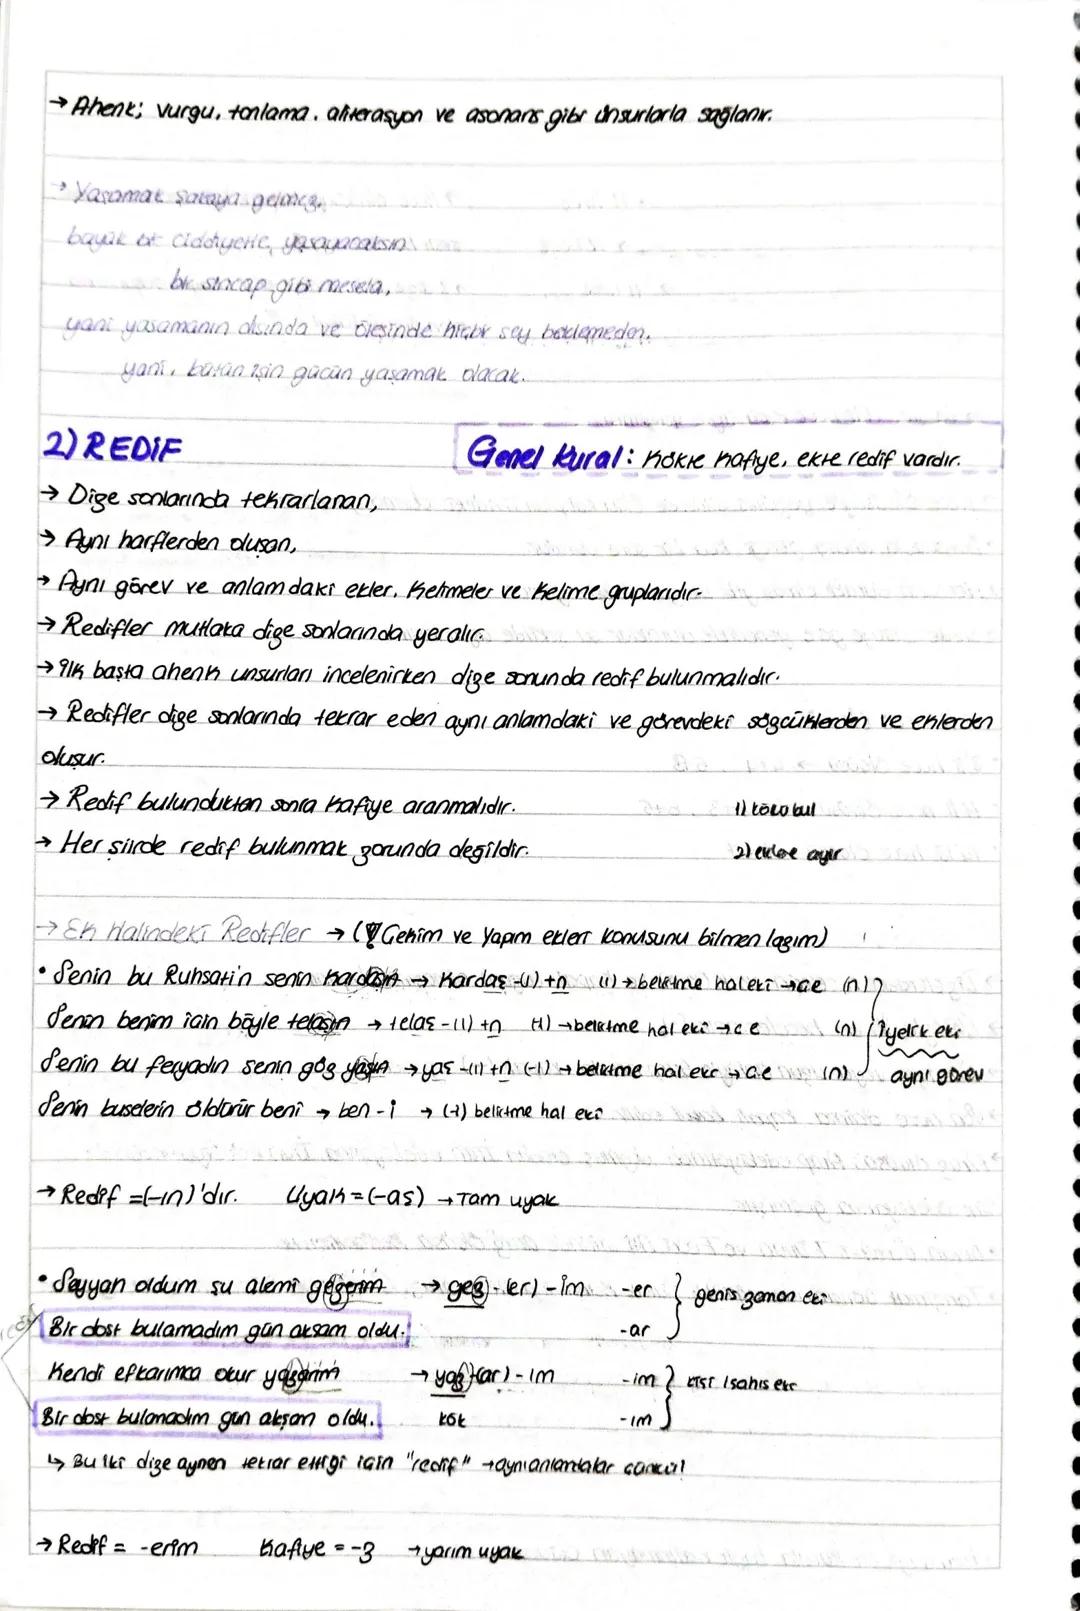 → Ahenk; vurgu, tonlama, aliterasyon ve asonans gibi ünsurlarla sağlanır.
→ Yaşamak şakaya gelmez,
büyük bir ciddiyetle, yaşayacaksın
bir sincap gibi mesela,
yani yaşamanın dışında ve ötesinde hiçbir şey beklemeden,
yani, bütün işin gücün yaşamak olacak.
2) REDİF
Genel Kural: Kökte kafiye, ekte redif vardır.
→ Dize sonlarında tekrarlanan,
→ Aynı harflerden oluşan,
→ Aynı görev ve anlamdaki ekler, kelimeler ve kelime gruplarıdır.
→ Redifler mutlaka dize sonlarında yer alır.
→ İlk başta ahenk unsurları incelenirken dize sonunda redif bulunmalıdır.
→ Redifler dize sonlarında tekrar eden aynı anlamdaki ve görevdeki sözcüklerden ve eklerden
oluşur.
→ Redif bulunduktan sonra kafiye aranmalıdır. 1) kökü bul
→ Her şiirde redif bulunmak zorunda değildir. 2) eklere ayır
→ Ek Halindeki Redifler → (! Çekim ve Yapım ekleri konusunu bilmen lazım)
• Senin bu Ruhsati'n senin kardaşın → Kardaş -(ı) +n (ı) → belirtme hal eki → ae (n)
Senin benim için böyle telaşın → telaş -(ı) +n (ı) → belirtme hal eki → ae (n) iyelik eki
Senin bu feryadın senin göz yaşın → yaş -(ı) +n (-ı) → belirtme hal eki → ae (n) aynı görev
Senin buselerin öldürür beni → ben -i → (-i) belirtme hal eki
→ Redif = (-ın)'dır. Uyak = (-aş) → Tam uyak
• Seyyan oldum şu alemi gezerim → gez - (er) - im -er } geniş zaman eki
Bir dost bulamadım gün akşam oldu. -ar
Kendi efkarımca okur yazarım → yaz - (ar) - ım -im } kişi / şahıs eki
Bir dost bulamadım gün akşam oldu. kök -ım
↳ Bu iki dize aynen tekrar ettiği için "redif" → aynı anlamdalar çünkü!
→ Redif = -erim Kafiye = -z → yarım uyak